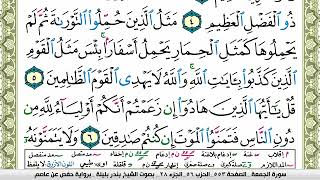 ذُو ٱلْفَضْلِ ٱلْعَظِيمِ ٤ مَثَلُ ٱلَّذِينَ حُمِّلُوا۟ ٱلتَّوْرَىٰةَ ثُمَّ لَمْ
يَحْمِلُوهَا كَمَثَلِ ٱلْحِمَارِ يَحْمِلُ أَسْفَارًۢا بِئْسَ مَثَلُ ٱلْقَوْمِ
ٱلَّذِينَ كَذَّبُوا۟ بِـَٔايَٰتِ ٱللَّهِ وَٱللَّهُ لَا يَهْدِى ٱلْقَوْمَ ٱلظَّٰلِمِينَ
٥ قُلْ يَٰٓأَيُّهَا ٱلَّذِينَ هَادُوٓا۟ إِن زَعَمْتُمْ أَنَّكُمْ أَوْلِيَآءُ لِلَّهِ مِن
دُونِ ٱلنَّاسِ فَتَمَنَّوُا۟ ٱلْمَوْتَ إِن كُنتُمْ صَٰدِقِينَ ٦ وَلَا يَتَمَنَّوْنَهُۥٓ
سورة الجمعة - الصفحة ٥٥٣ - الحزب ٥٦ - الجزء ٢٨ - بصوت الشيخ بندر بليلة - رواية حفص عن عاصم